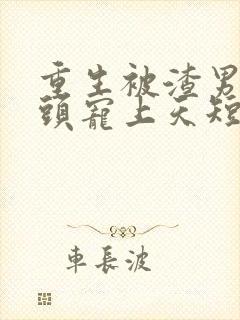 重生被渣男
頭寵上天短
車長波